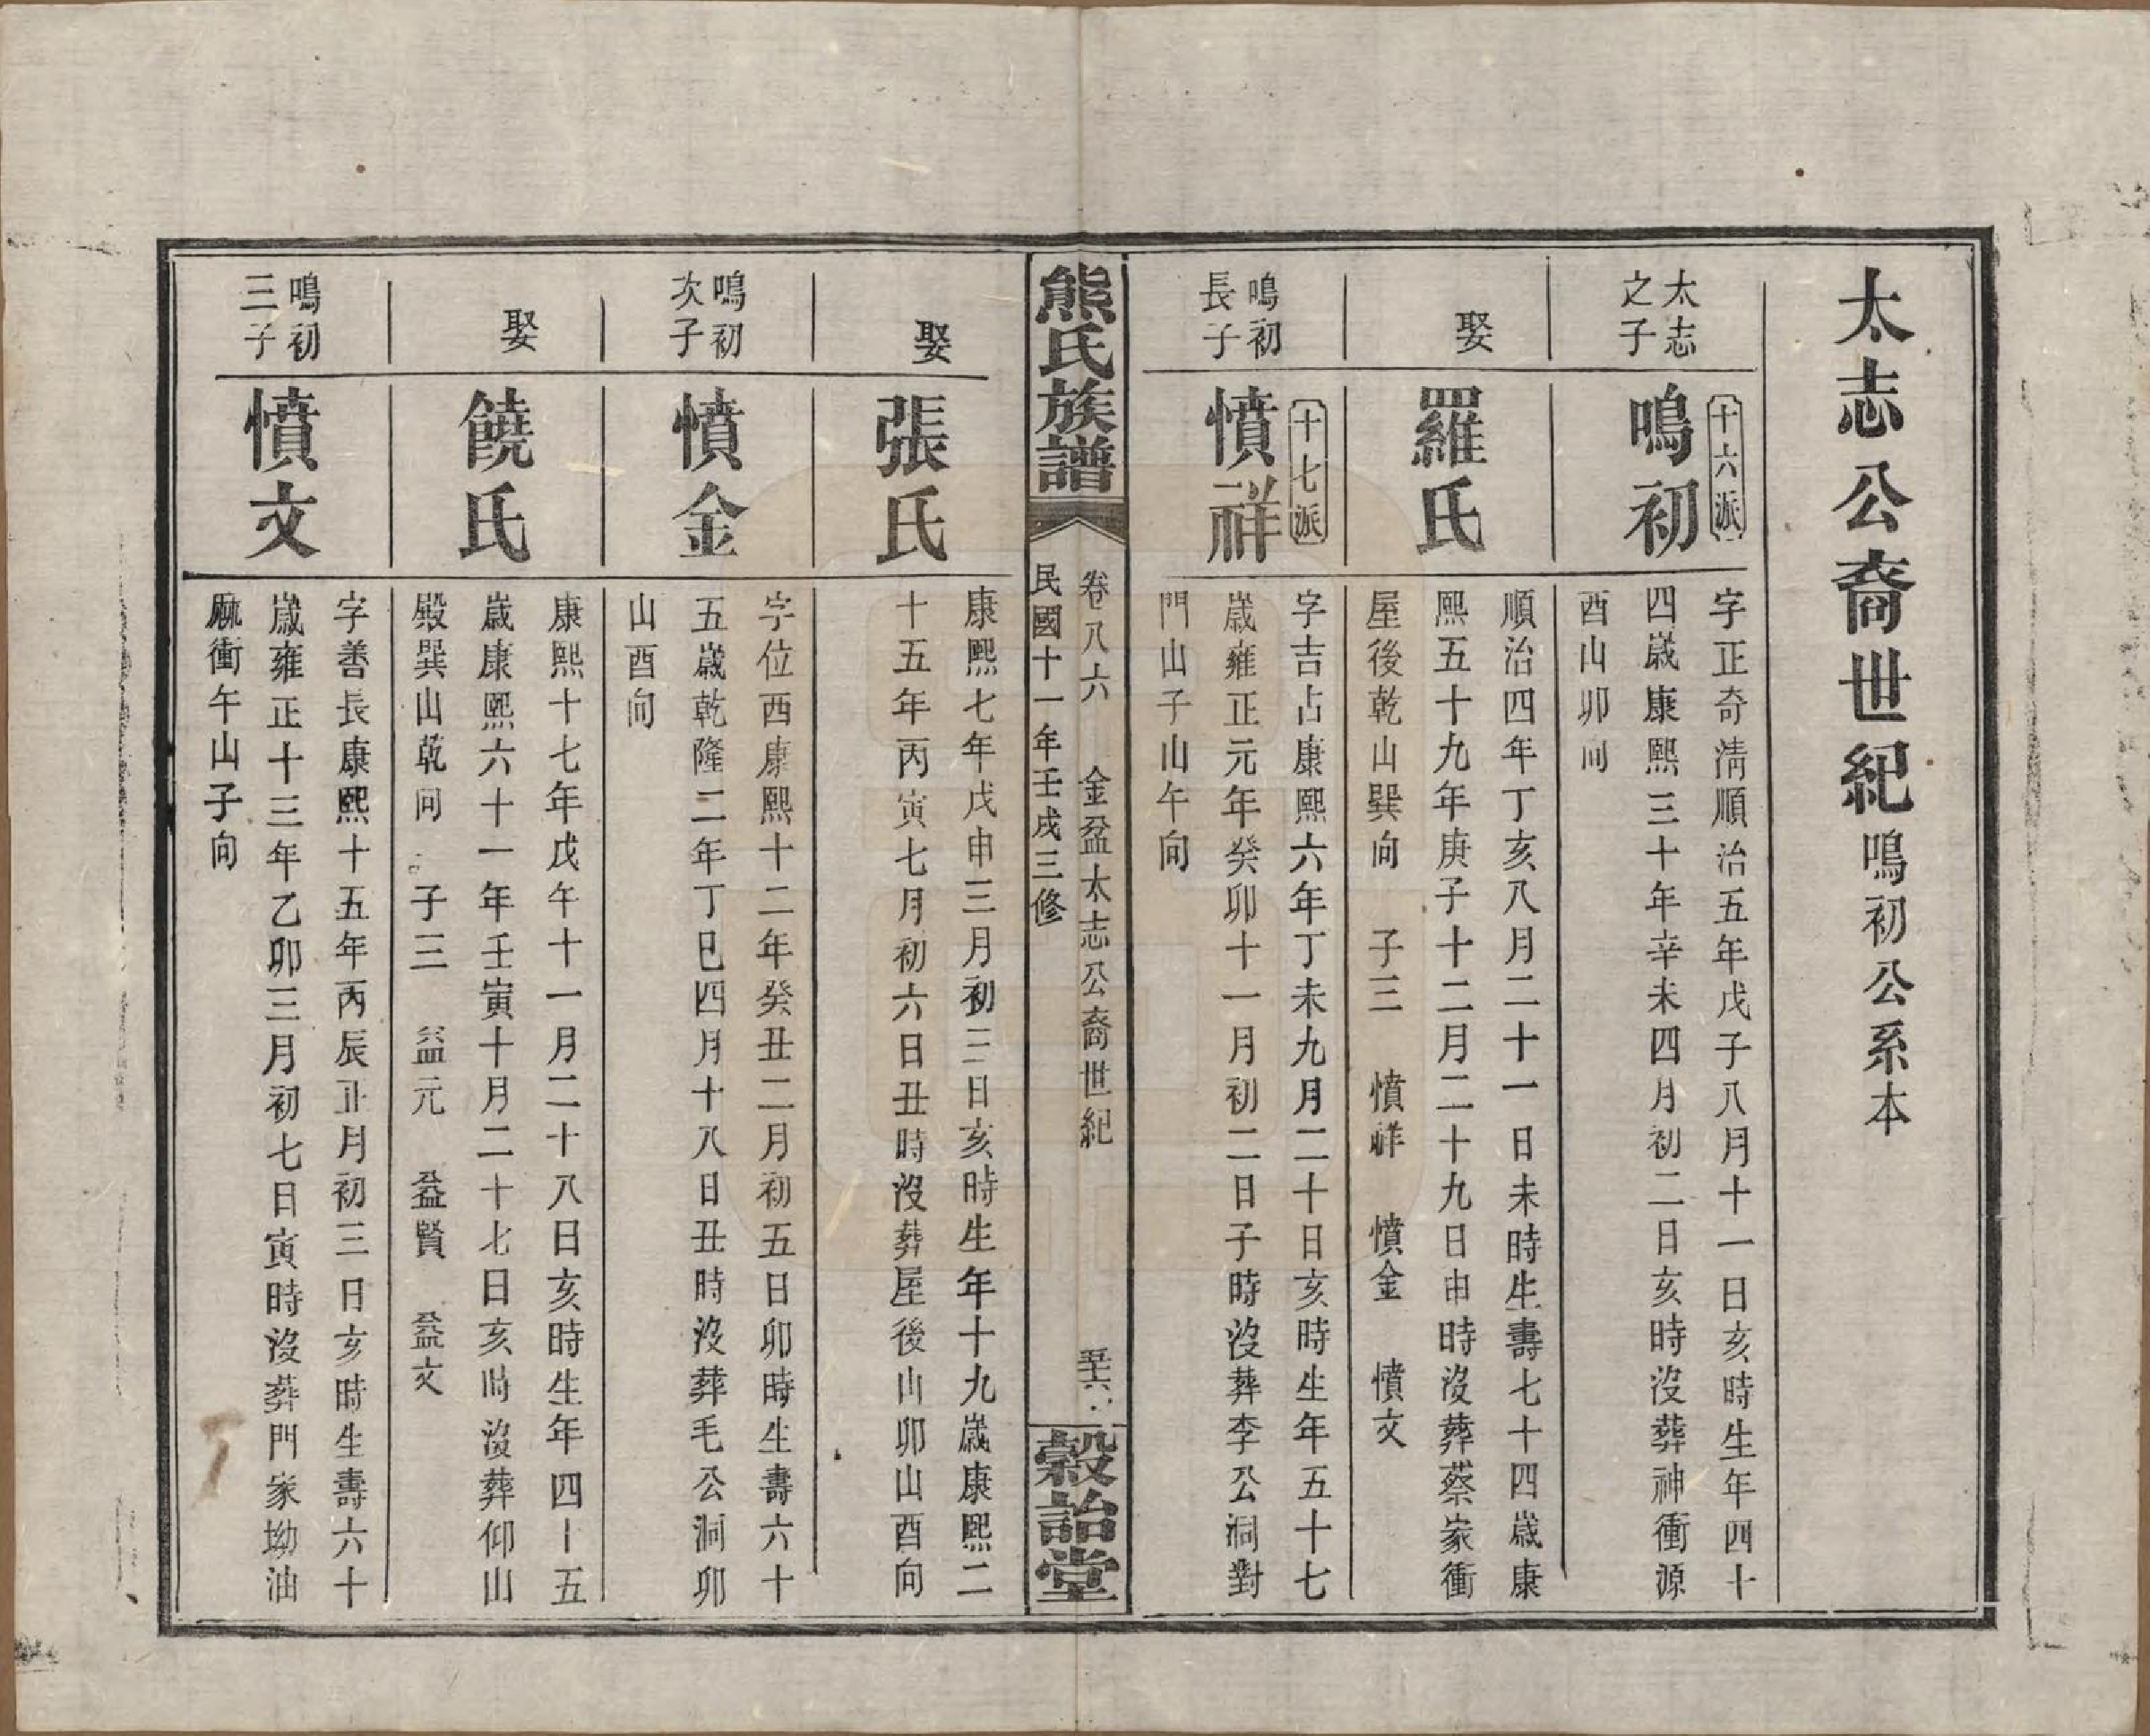 太志公裔世紀鳴初公系本
太志
之子
十六派
鳴初
字正奇淸順治五年戊子八月十一日亥時生年四十
四歲康熙三十年辛未四月初二日亥時沒葬神衝源
酉山卯向
娶
羅氏
順治四年丁亥八月二十一日未時生壽七十四歲康
熙五十九年庚子十二月二十九日申時沒葬蔡家衝
屋後乾山巽向 子三 憤祥 憤金 憤文
鳴初
長子
十七派
憤祥
字吉占康熙六年丁未九月二十日亥時生年五十七
歲雍正元年癸卯十一月初二日子時沒葬李公洞對
門山子山午向
熊氏族譜
卷八六 金盆太志公裔世紀
民國十一年壬戌三修
穀詒堂
娶
張氏
康熙七年戊申三月初三日亥時生年十九歲康熙二
十五年丙寅七月初六日丑時沒葬屋後山卯山酉向
鳴初
次子
憤金
字位西康熙十二年癸丑二月初五日卯時生壽六十
五歲乾隆二年丁巳四月十八日丑時沒葬毛公洞卯
山酉向
娶
饒氏
康熙十七年戊午十一月二十八日亥時生年四十五
歲康熙六十一年壬寅十月二十七日亥時沒葬仰山
殿巽山乾向 子三 益元 益賢 益文
鳴初
三子
憤文
字善長康熙十五年丙辰正月初三日亥時生壽六十
歲雍正十三年乙卯三月初七日寅時沒葬門家坳油
麻衝午山子向